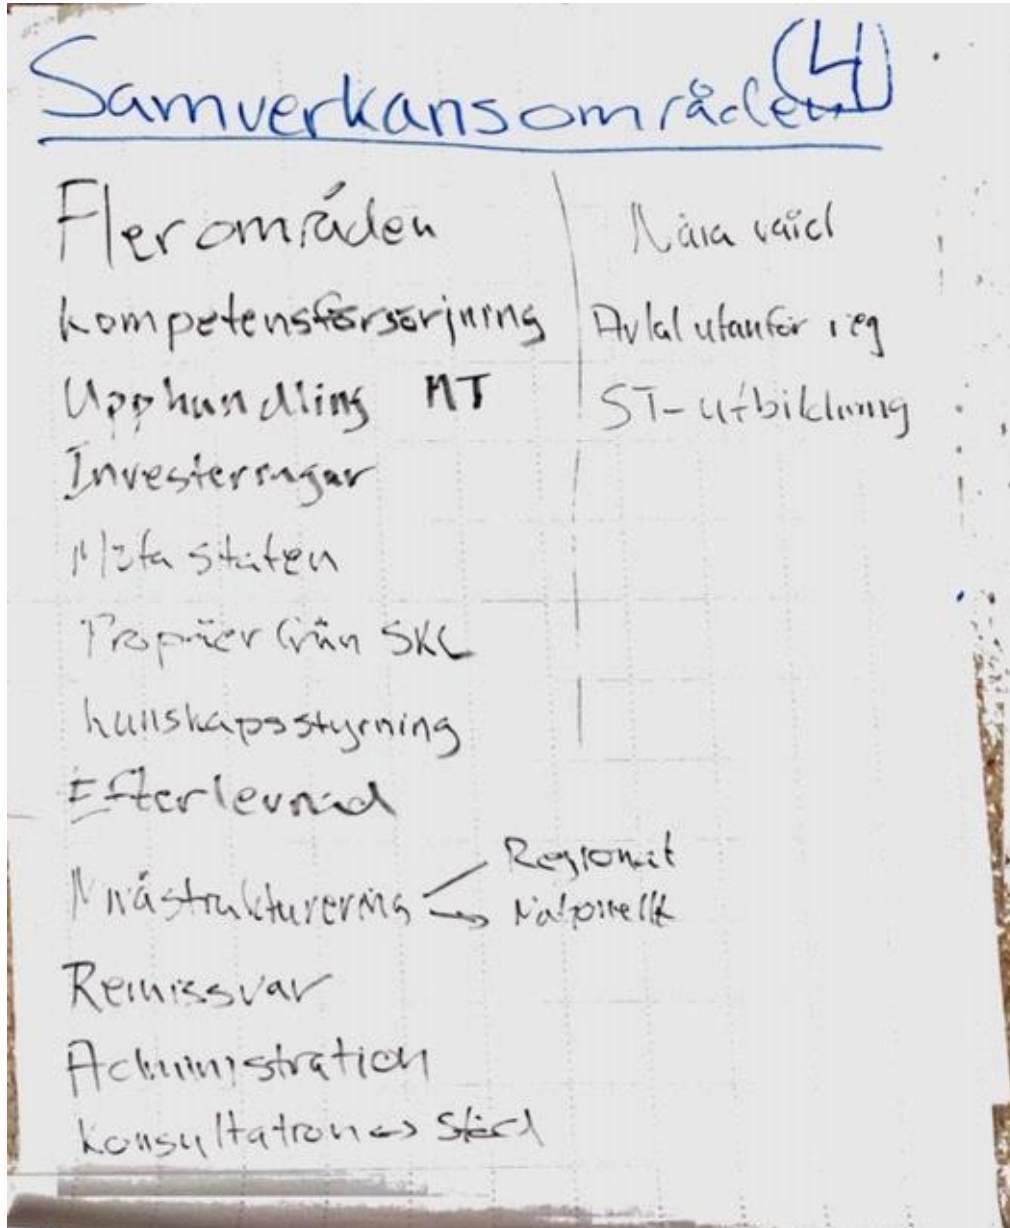 Samverkansområden (4)
Fler områden
Kompetensförsörjning
Upphandling MT
Investeringar
Möta staten
Propåer från SKL
kunskapsstyrning
Efterlevnad
Nivåstrukturering
Regionalt
Nationellt
Remissvar
Administration
Konsultation ↔ Stöd
Nära vård
Avtal utanför reg
ST-utbildning